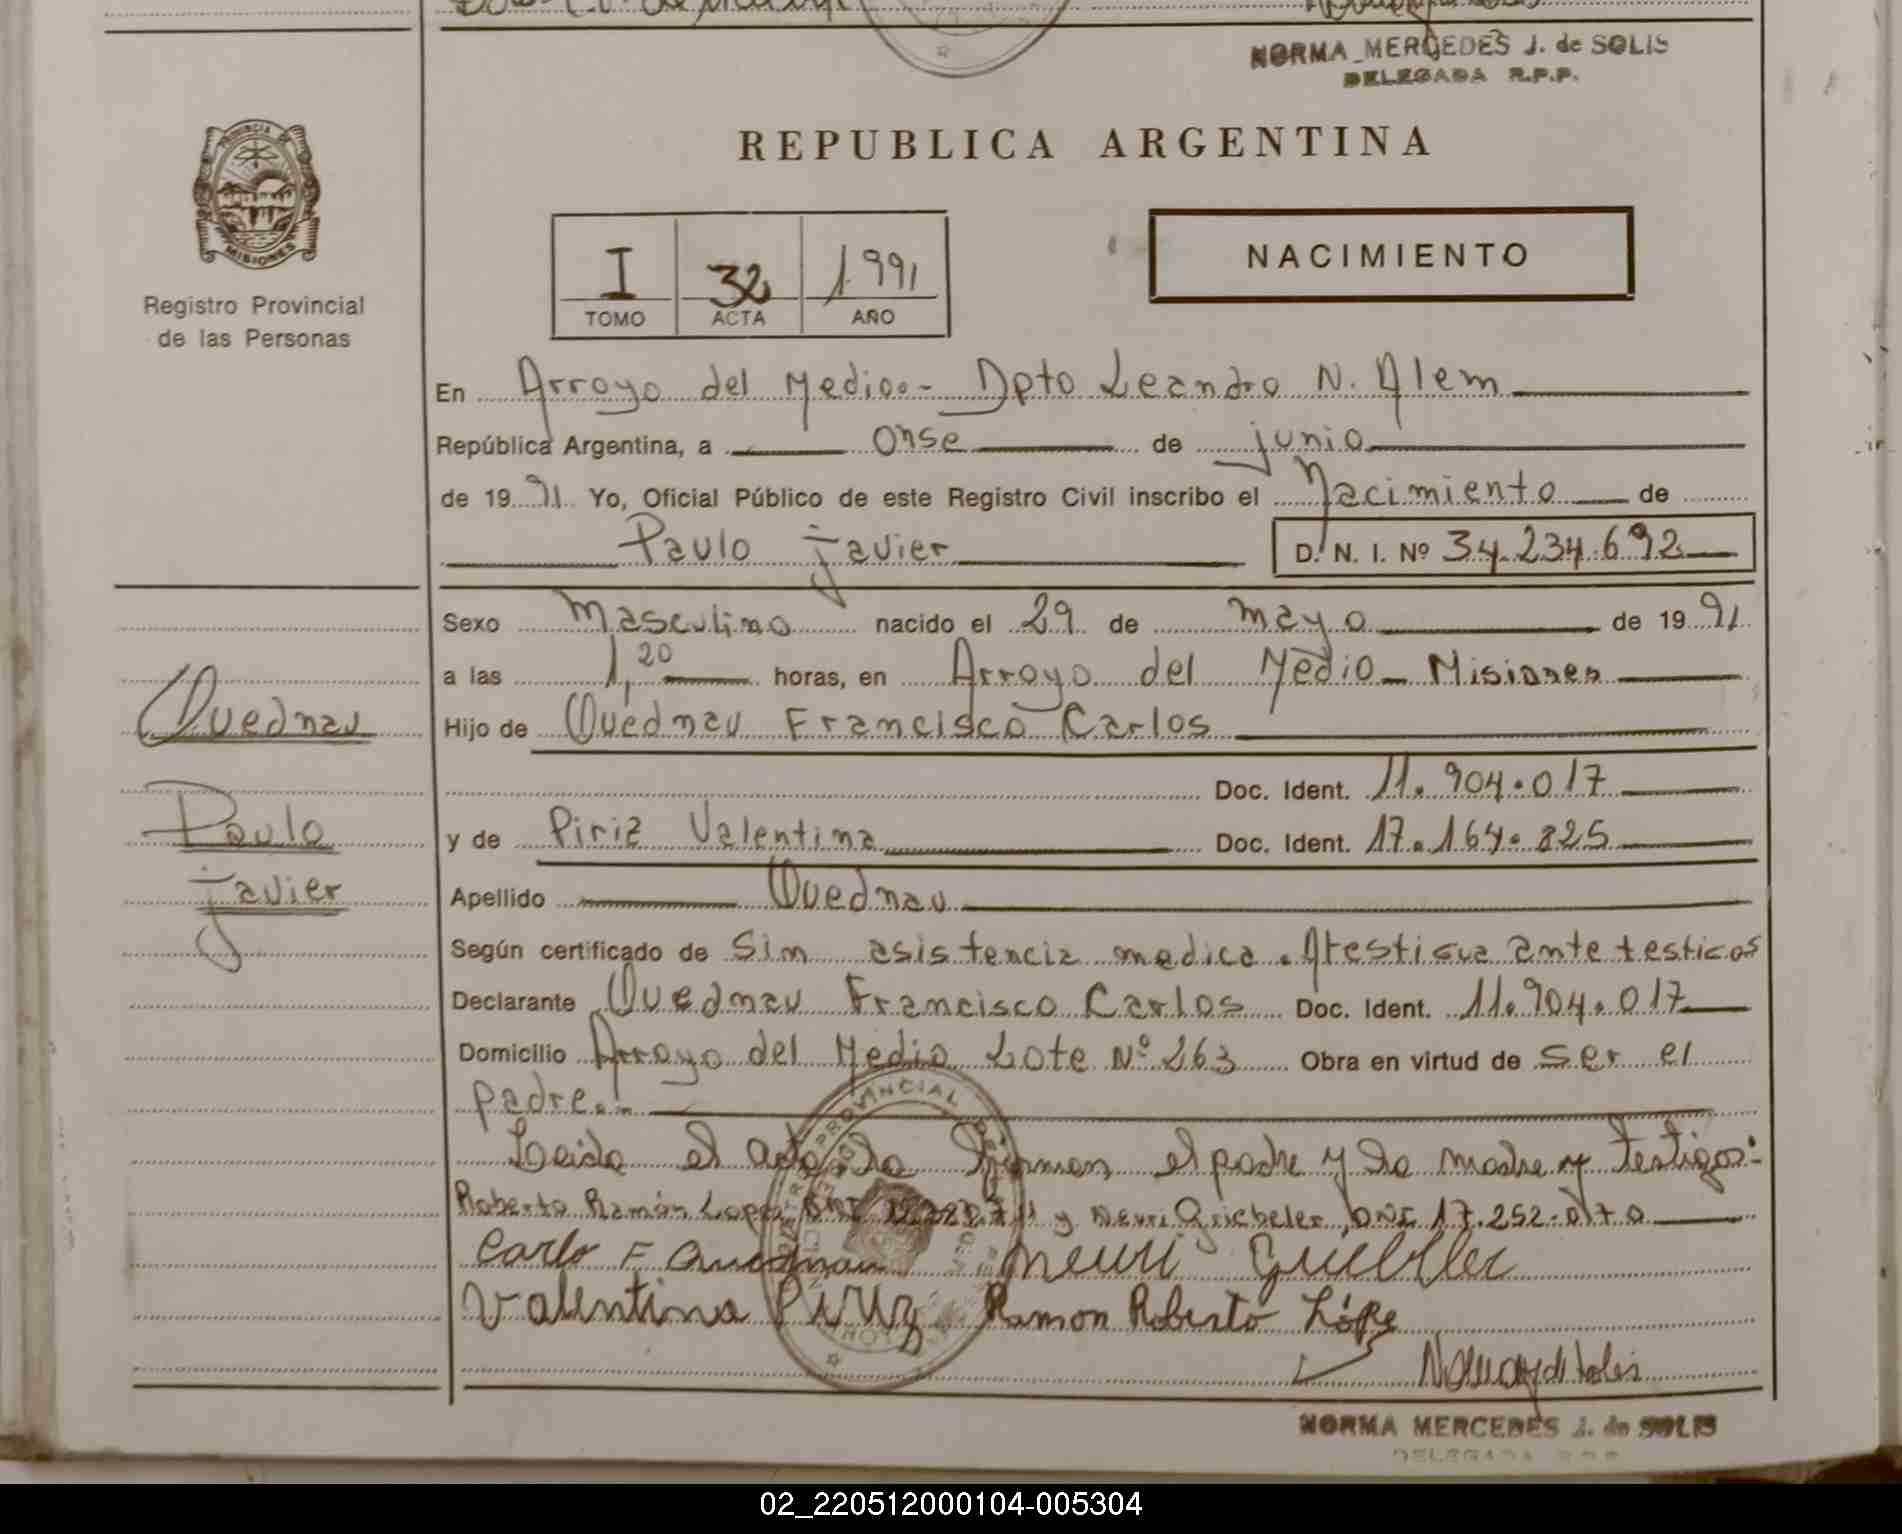 NORMA MERCEDES J. de SOLIS
DELEGADA R.P.P.
PROVINCIA DE
MISIONES
Registro Provincial
de las Personas
REPUBLICA ARGENTINA
I 32 1991
TOMO ACTA AÑO
NACIMIENTO
En Arroyo del Medio.- Dpto Leandro N. Alem
República Argentina, a onse de junio
de 1991 Yo, Oficial Público de este Registro Civil inscribo el Nacimiento de
Paulo Javier D. N. I. Nº 34.234.692
Sexo Masculino nacido el 29 de mayo de 1991
a las 1,20 horas, en Arroyo del Medio - Misiones
Quednau Hijo de Quednau Francisco Carlos
Doc. Ident. 11.904.017
Paulo y de Piriz Valentina Doc. Ident. 17.164.825
Javier Apellido Quednau
Según certificado de Sin asistencia medica. Atestigua ante testigos
Declarante Quednau Francisco Carlos Doc. Ident. 11.904.017
Domicilio Arroyo del Medio Lote Nº 263 Obra en virtud de ser el
padre.
Leida el acta la firman el padre y la madre y testigos:
Roberto Ramón Lopez DNI y Neuri Griebeler, DNI 17.252.070
Carlo F Quednau Neuri Griebeler
Valentina Piriz Ramon Roberto Lópe
NORMA MERCEDES J. de SOLIS
DELEGADA R.P.P.
02_220512000104-005304